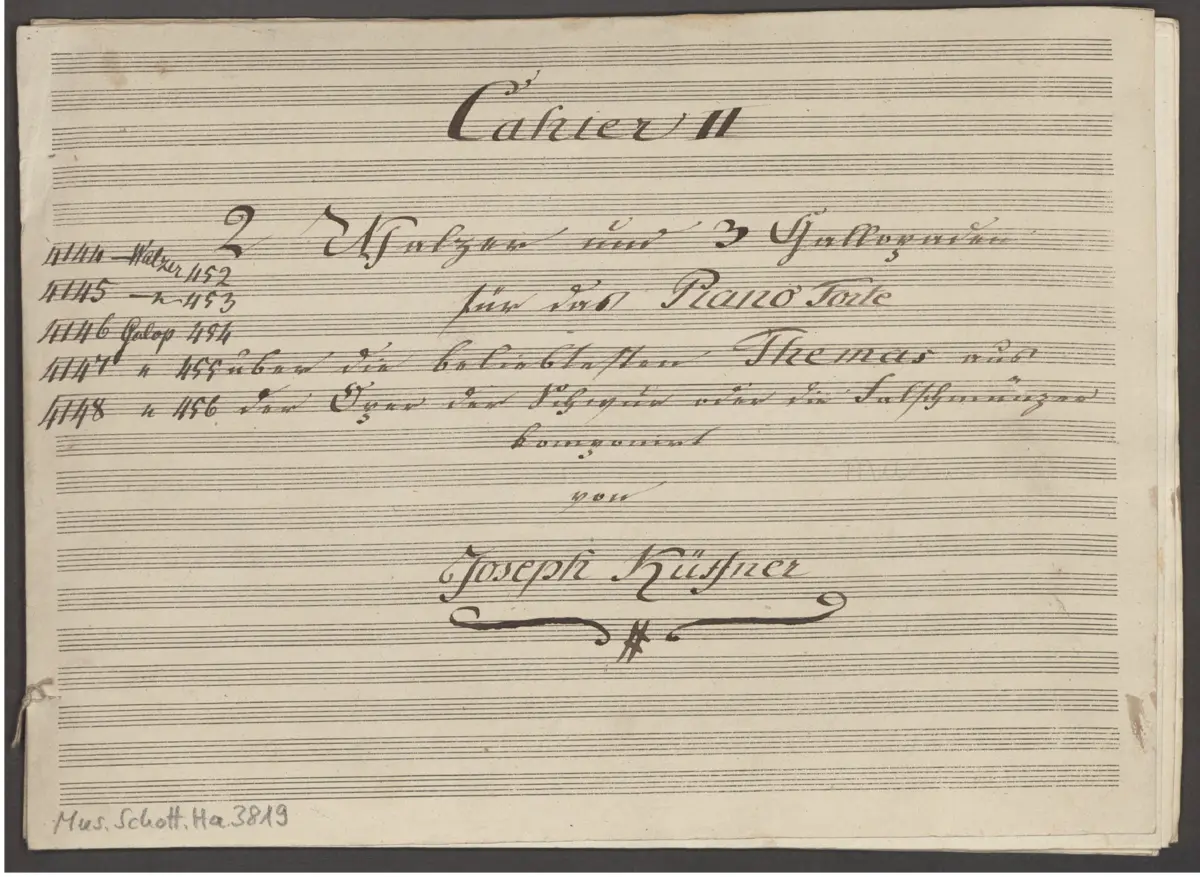 Cahier II
2 Walzer und 3 Gallopaden
für das Piano Forte
über die beliebtesten Themas aus
der Oper der Schwur oder die Falschmünzer
komponirt
von
Joseph Küffner
4144 – Walzer 452
4145 – " 453
4146 Galop 454
4147 " 455
4148 " 456
Mus. Schott. Ha 3819